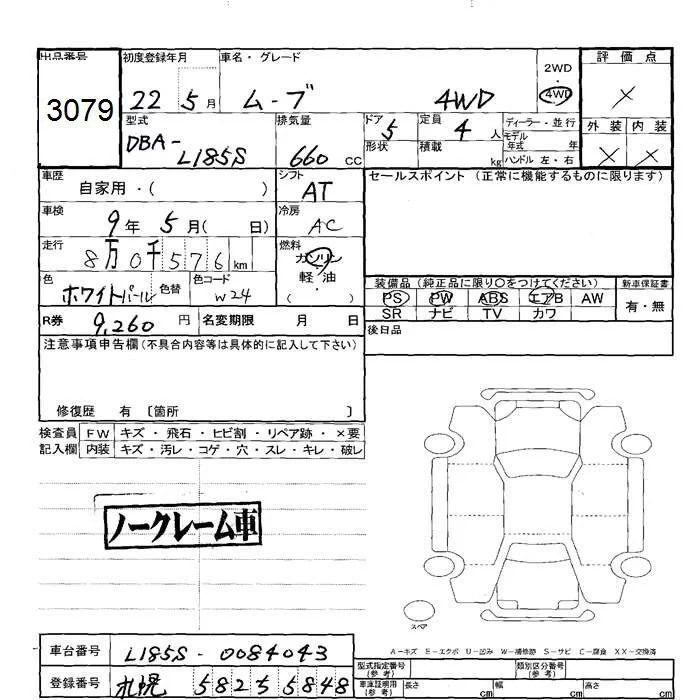 出品番号 初度登録年月 車名・グレード 2WD・4WD 評価点
3079 22 5月 ムーブ 4WD ×
型式 排気量 ドア 定員 ディーラー・並行 外装 内装
DBA-L185S 660 cc 5 4人 モデル年式 年 × ×
形状 積載 kg ハンドル 左・右
車歴 シフト セールスポイント(正常に機能するものに限ります)
自家用・( ) AT
車検 冷房
9年 5月( 日) AC
走行 燃料
8万0千576km ガソリン
軽・油
( )
色 色替 色コード 装備品(純正品に限り〇をつけてください) 新車保証書
ホワイトパール W24 PS PW ABS エアB AW 有・無
SR ナビ TV カワ
R券 9,260円 名変期限 月 日 後日品
注意事項申告欄(不具合内容等は具体的に記入して下さい)
修復歴 有 〔箇所 〕
検査員 FW キズ・飛石・ヒビ割・リペア跡・×要
記入欄 内装 キズ・汚レ・コゲ・穴・スレ・キレ・破レ
ノークレーム車
スペア
A-キズ E-エクボ U-凹み W-補修跡 S-サビ C-腐食 XX-交換済
車台番号 L185S-0084043 型式指定番号(参考) 類別区分番号(参考)
登録番号 札幌 582 55848 車庫証明用(参考) 長さ cm 幅 cm 高さ cm